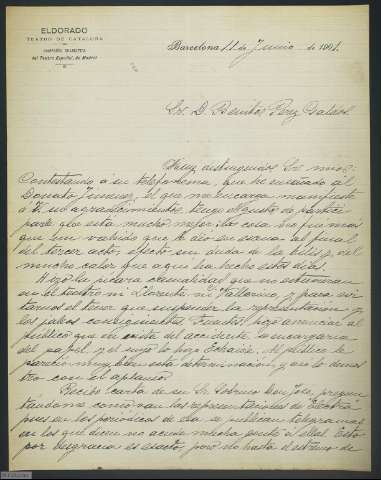 ELDORADO
TEATRO DE CATALUÑA
COMPAÑIA DRAMATICA
del Teatro Español, de Madrid
Barcelona 11 de Junio de 1901.
Sr. D. Benito Pérez Galdós.
Muy distinguido Sr. mio:
Contestando á su telefonema, que he enseñado al
Donato Jimenez, el que me encarga manifieste
á V. su agradecimiento, tengo el gusto de
parte que esta mucho mejor. La cosa no fue mas
que un vahido que le dio en escena al final
del tercer acto, efecto sin duda de la bilis y del
mucho calor que aqui ha hecho estos dias.
la picara casualidad que no estuvieran
en el teatro ni Llorente ni Vallarino, y para evi-
tarnos el tener que suspender la representacion y
los jaleos consiguientes, Fuentes hizo anunciar al
publico que en vista del accidente se encargaria
del papel, y el suyo lo hizo Echaide. Al publico le
parecio muy bien esta determinacion y asi lo demos-
tro con el aplauso.
Recibo carta de su Sr. Sobrino Don José, pregun-
tandome como van las representaciones de Electra
pues en los periodicos de esa se publican telegramas
en los que dicen no acude mucha gente á ella. Esto
por desgracia es exacto, pero no hasta el extremo de